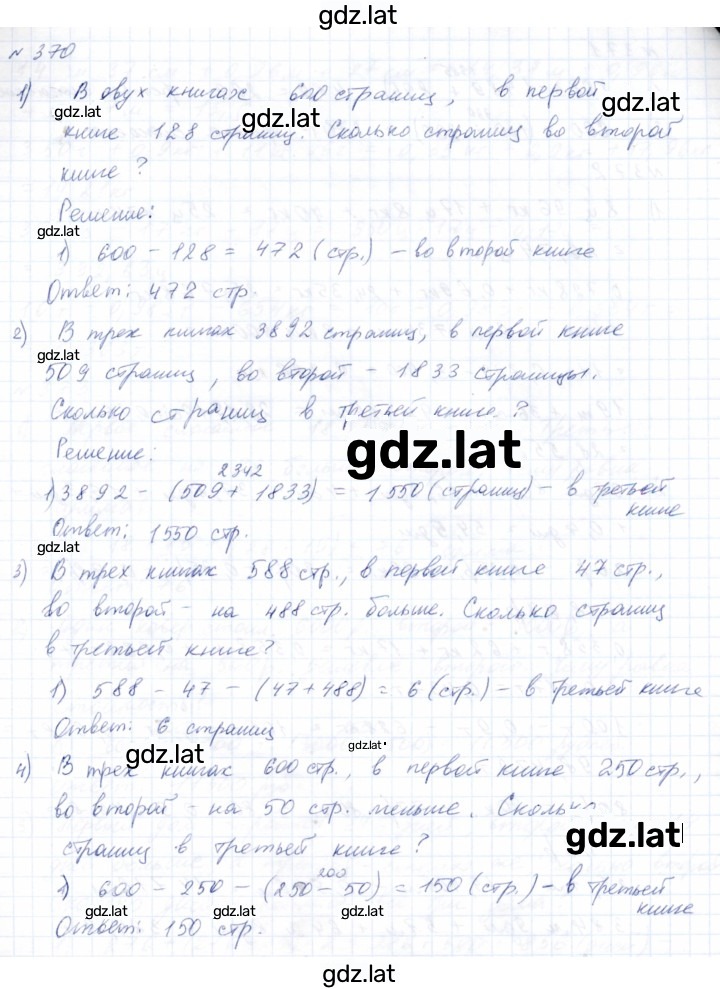 gdz.lat
№ 370
1) В двух книгах 600 страниц, в первой
gdz.lat gdz.lat gdz.lat
книге 128 страниц. Сколько страниц во второй
книге?
Решение:
gdz.lat
1) 600 - 128 = 472 (стр.) - во второй книге
Ответ: 472 стр.
2) В трех книгах 3892 страниц, в первой книге
gdz.lat
509 страниц, во второй - 1833 страницы.
Сколько страниц в третьей книге?
gdz.lat
Решение:
2342
1) 3892 - (509 + 1833) = 1550 (страниц) - в третьей
книге
Ответ: 1550 стр.
gdz.lat
3) В трех книгах 588 стр., в первой книге 47 стр.,
во второй - на 488 стр. больше. Сколько страниц
в третьей книге?
1) 588 - 47 - (47 + 488) = 6 (стр.) - в третьей книге
Ответ: 6 страниц
gdz.lat gdz.lat
4) В трех книгах 600 стр., в первой книге 250 стр.,
во второй - на 50 стр. меньше.
gdz.lat
страниц в третьей книге?
200
1) 600 - 250 - (250 - 50) = 150 (стр.) - в третьей
книге
gdz.lat gdz.lat gdz.lat
Ответ: 150 стр.
gdz.lat